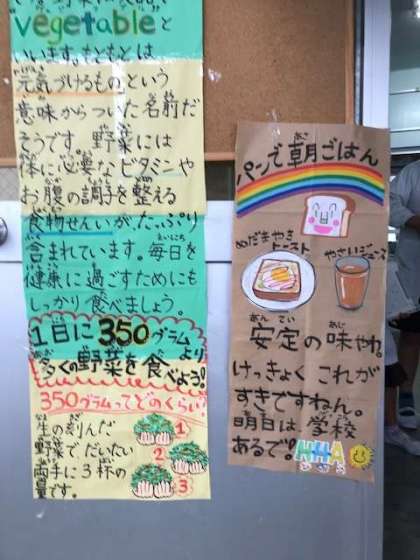 vegetableと
いいます。もともとは
元気づけるものという
意味からついた名前だ
そうです。野菜には
体に必要なビタミンや
お腹の調子を整える
食物せんいが、たっぷり
含まれています。毎日を
健康に過ごすためにも
しっかり食べましょう。
1日に350グラムより
多くの野菜を食べよう!
350グラムってどのくらい?
生の刻んだ
野菜で、だいたい
両手に3杯の
量です。
1
2
3
パンで朝ごはん
めだまやき
トースト
やさいじゅーす
安定の味やね。
けっきょくこれが
すきですねん。
明日は学校
あるで!